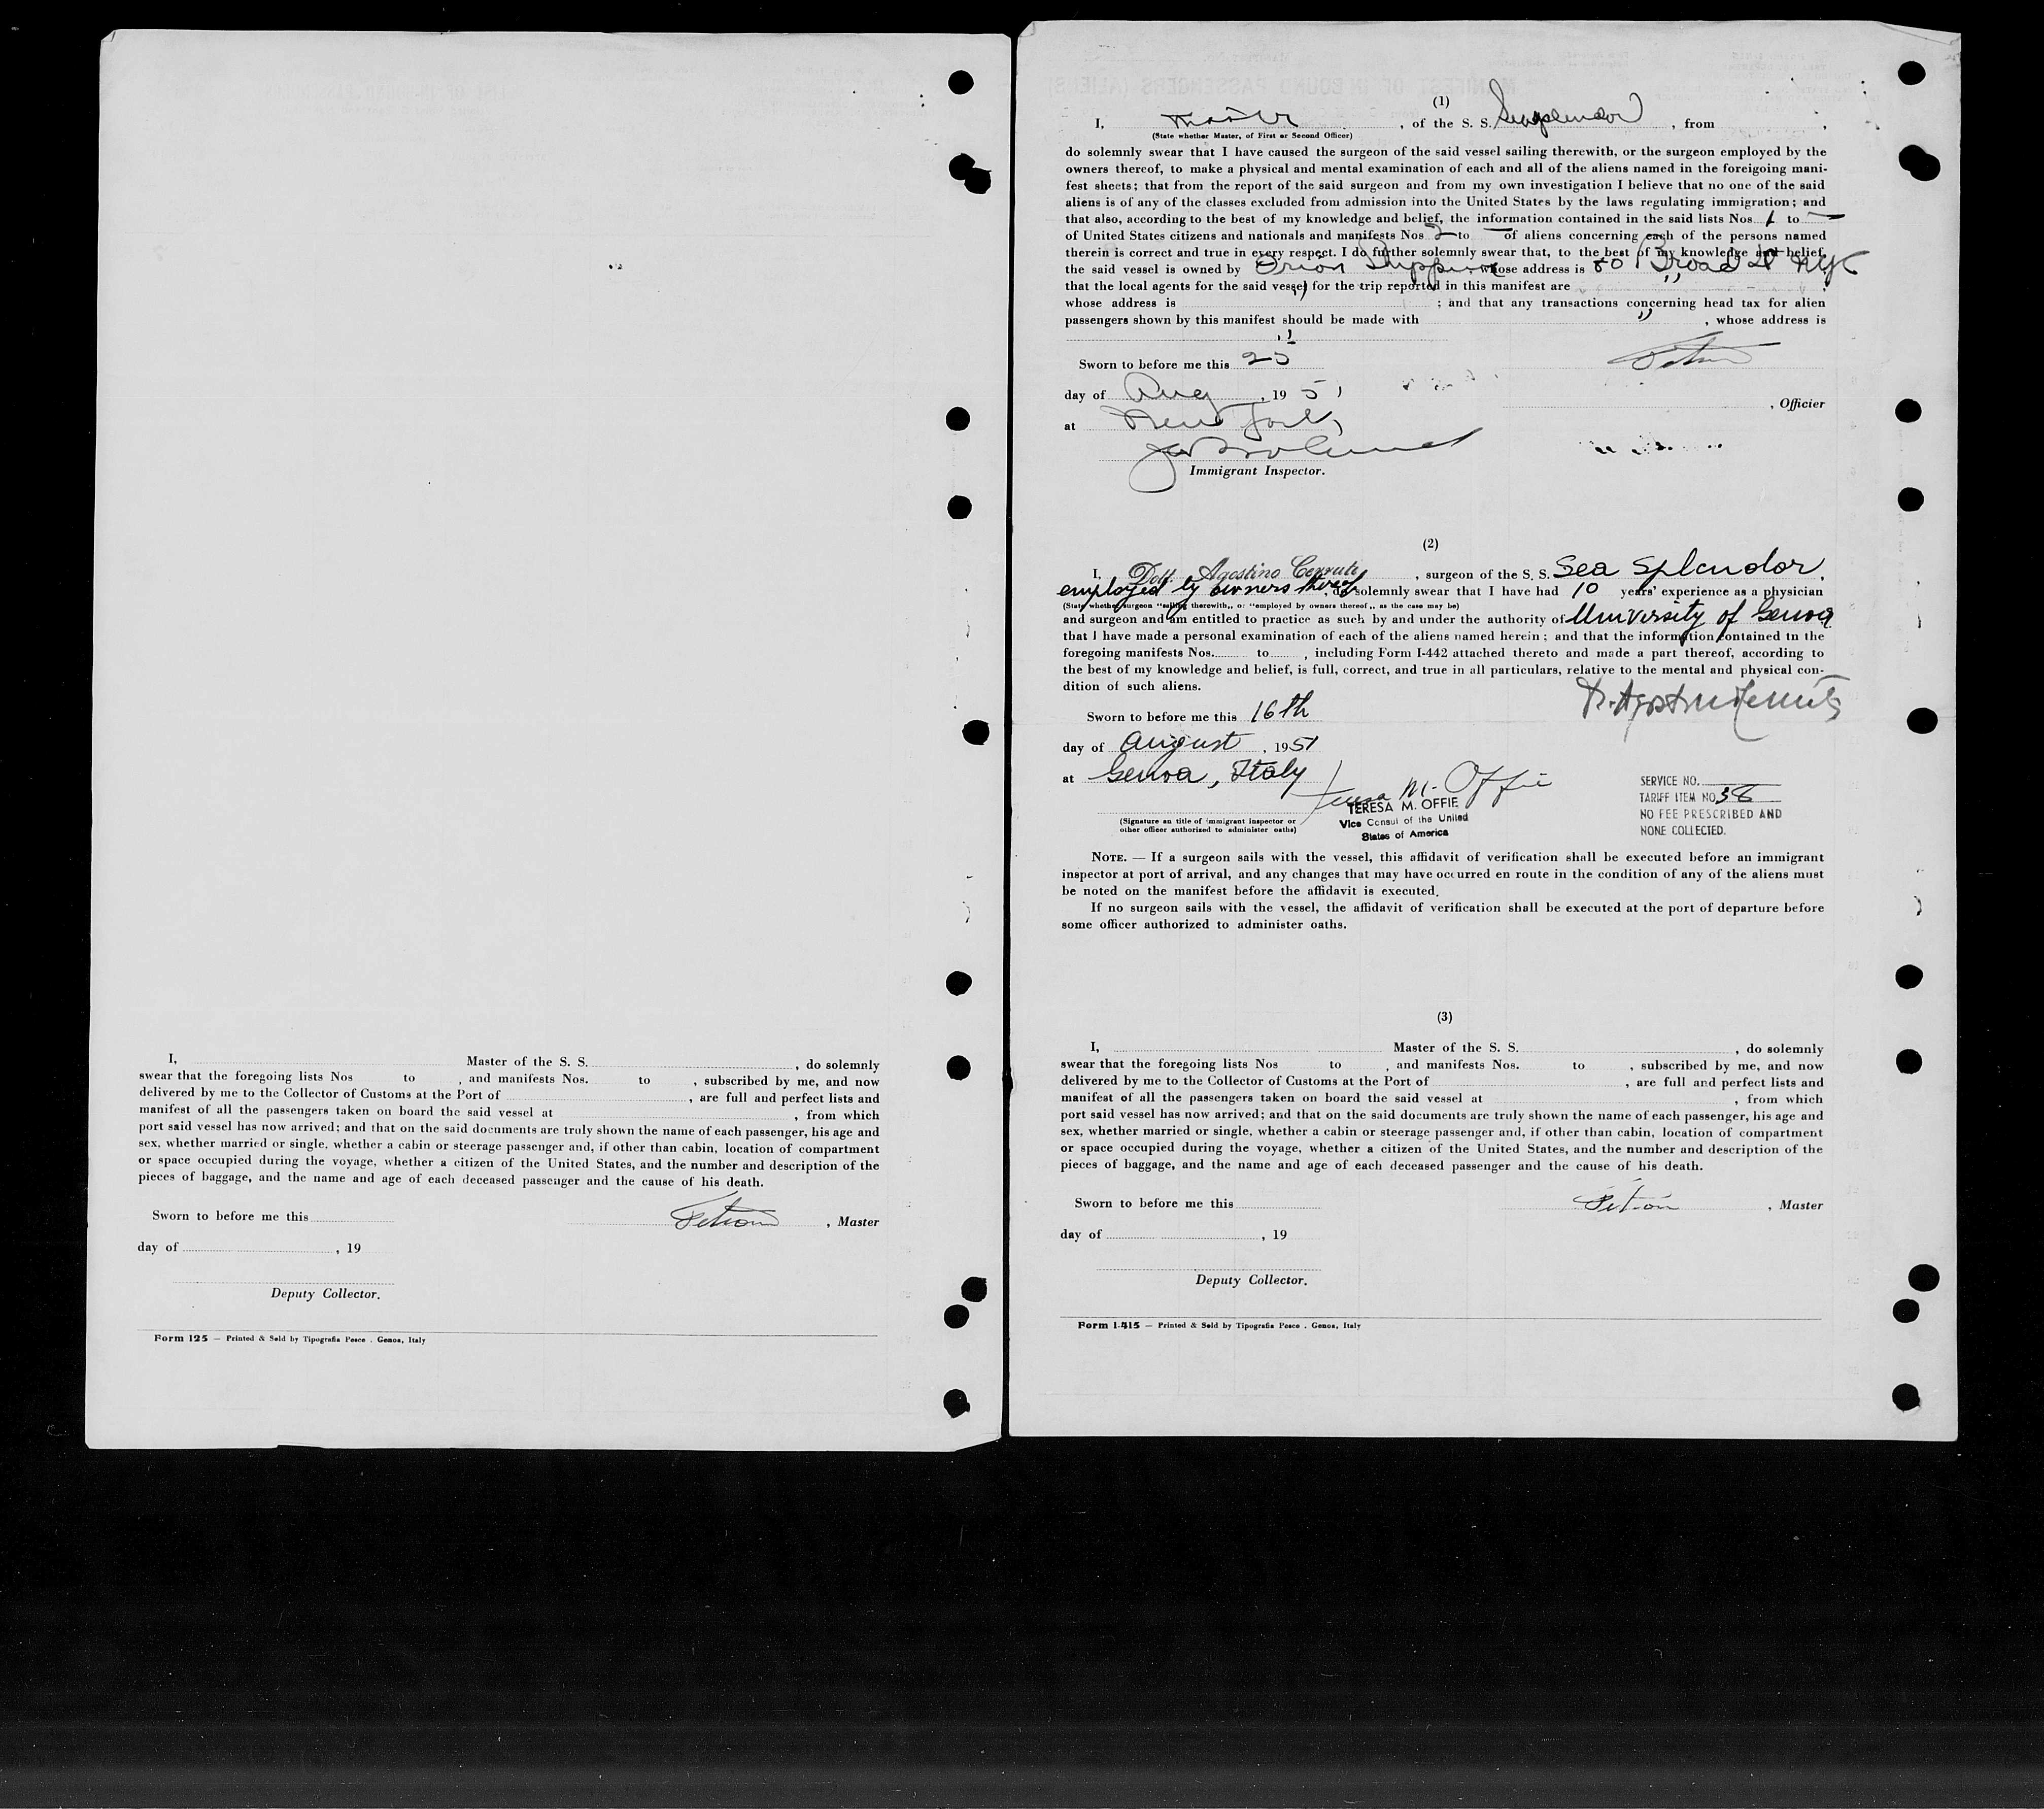 I, Master of the S. S. , do solemnly
swear that the foregoing lists Nos to , and manifests Nos. to , subscribed by me, and now
delivered by me to the Collector of Customs at the Port of , are full and perfect lists and
manifest of all the passengers taken on board the said vessel at , from which
port said vessel has now arrived; and that on the said documents are truly shown the name of each passenger, his age and
sex, whether married or single, whether a cabin or steerage passenger and, if other than cabin, location of compartment
or space occupied during the voyage, whether a citizen of the United States, and the number and description of the
pieces of baggage, and the name and age of each deceased passenger and the cause of his death.
Sworn to before me this
, Master
day of , 19
Deputy Collector.
Form 125 — Printed & Sold by Tipografia Pesce . Genoa, Italy
(1)
I, Master , of the S. S. Seasplendor , from ,
(State whether Master, of First or Second Officer)
do solemnly swear that I have caused the surgeon of the said vessel sailing therewith, or the surgeon employed by the
owners thereof, to make a physical and mental examination of each and all of the aliens named in the foreigoing mani-
fest sheets; that from the report of the said surgeon and from my own investigation I believe that no one of the said
aliens is of any of the classes excluded from admission into the United States by the laws regulating immigration; and
that also, according to the best of my knowledge and belief, the information contained in the said lists Nos 1 to —
of United States citizens and nationals and manifests Nos 2 to — of aliens concerning each of the persons named
therein is correct and true in every respect. I do further solemnly swear that, to the best of my knowledge and belief,
the said vessel is owned by Orion Shipping whose address is 80 Broad St NYC
that the local agents for the said vessel for the trip reported in this manifest are "
whose address is " ; and that any transactions concerning head tax for alien
passengers shown by this manifest should be made with " , whose address is
"
Sworn to before me this 25
day of Aug , 19 51
, Officier
at New York,
Immigrant Inspector.
(2)
I, Dott. Agostino Cerruti , surgeon of the S. S. Sea Splendor,
employed by owners thereof, do solemnly swear that I have had 10 years' experience as a physician
(State whether surgeon "sailing therewith,, or "employed by owners thereof,, as the case may be)
and surgeon and am entitled to practice as such by and under the authority of University of Genoa
that I have made a personal examination of each of the aliens named herein; and that the information contained tn the
foregoing manifests Nos. to , including Form I-442 attached thereto and made a part thereof, according to
the best of my knowledge and belief, is full, correct, and true in all particulars, relative to the mental and physical con-
dition of such aliens.
Sworn to before me this 16th
day of August , 1951
at Genoa, Italy
Teresa M. Offie
TERESA M. OFFIE
Vice Consul of the United
States of America
(Signature an title of immigrant inspector or
other officer authorized to administer oaths)
SERVICE NO.
TARIFF ITEM NO 38
NO FEE PRESCRIBED AND
NONE COLLECTED.
NOTE. — If a surgeon sails with the vessel, this affidavit of verification shall be executed before an immigrant
inspector at port of arrival, and any changes that may have occurred en route in the condition of any of the aliens must
be noted on the manifest before the affidavit is executed.
If no surgeon sails with the vessel, the affidavit of verification shall be executed at the port of departure before
some officer authorized to administer oaths.
(3)
I, Master of the S. S. , do solemnly
swear that the foregoing lists Nos to , and manifests Nos. to , subscribed by me, and now
delivered by me to the Collector of Customs at the Port of , are full and perfect lists and
manifest of all the passengers taken on board the said vessel at , from which
port said vessel has now arrived; and that on the said documents are truly shown the name of each passenger, his age and
sex, whether married or single, whether a cabin or steerage passenger and, if other than cabin, location of compartment
or space occupied during the voyage, whether a citizen of the United States, and the number and description of the
pieces of baggage, and the name and age of each deceased passenger and the cause of his death.
Sworn to before me this
, Master
day of , 19
Deputy Collector.
Form I-415 — Printed & Sold by Tipografia Pesce . Genoa, Italy